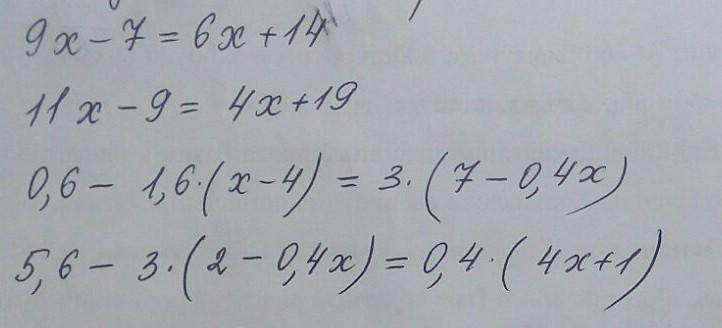 9x - 7 = 6x + 14
11x - 9 = 4x + 19
0,6 - 1,6·(x - 4) = 3·(7 - 0,4x)
5,6 - 3·(2 - 0,4x) = 0,4·(4x + 1)